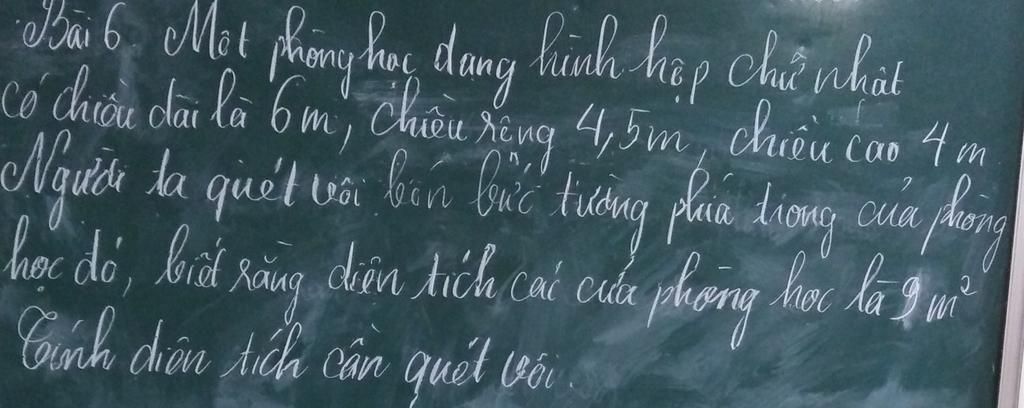 Bài 6. Một phòng học dạng hình hộp chữ nhật
có chiều dài là 6m, chiều rộng 4,5m, chiều cao 4m
Người ta quét vôi bốn bức tường phía trong của phòng
học đó, biết rằng diện tích các cửa phòng học là 9m²
Tính diện tích cần quét vôi.